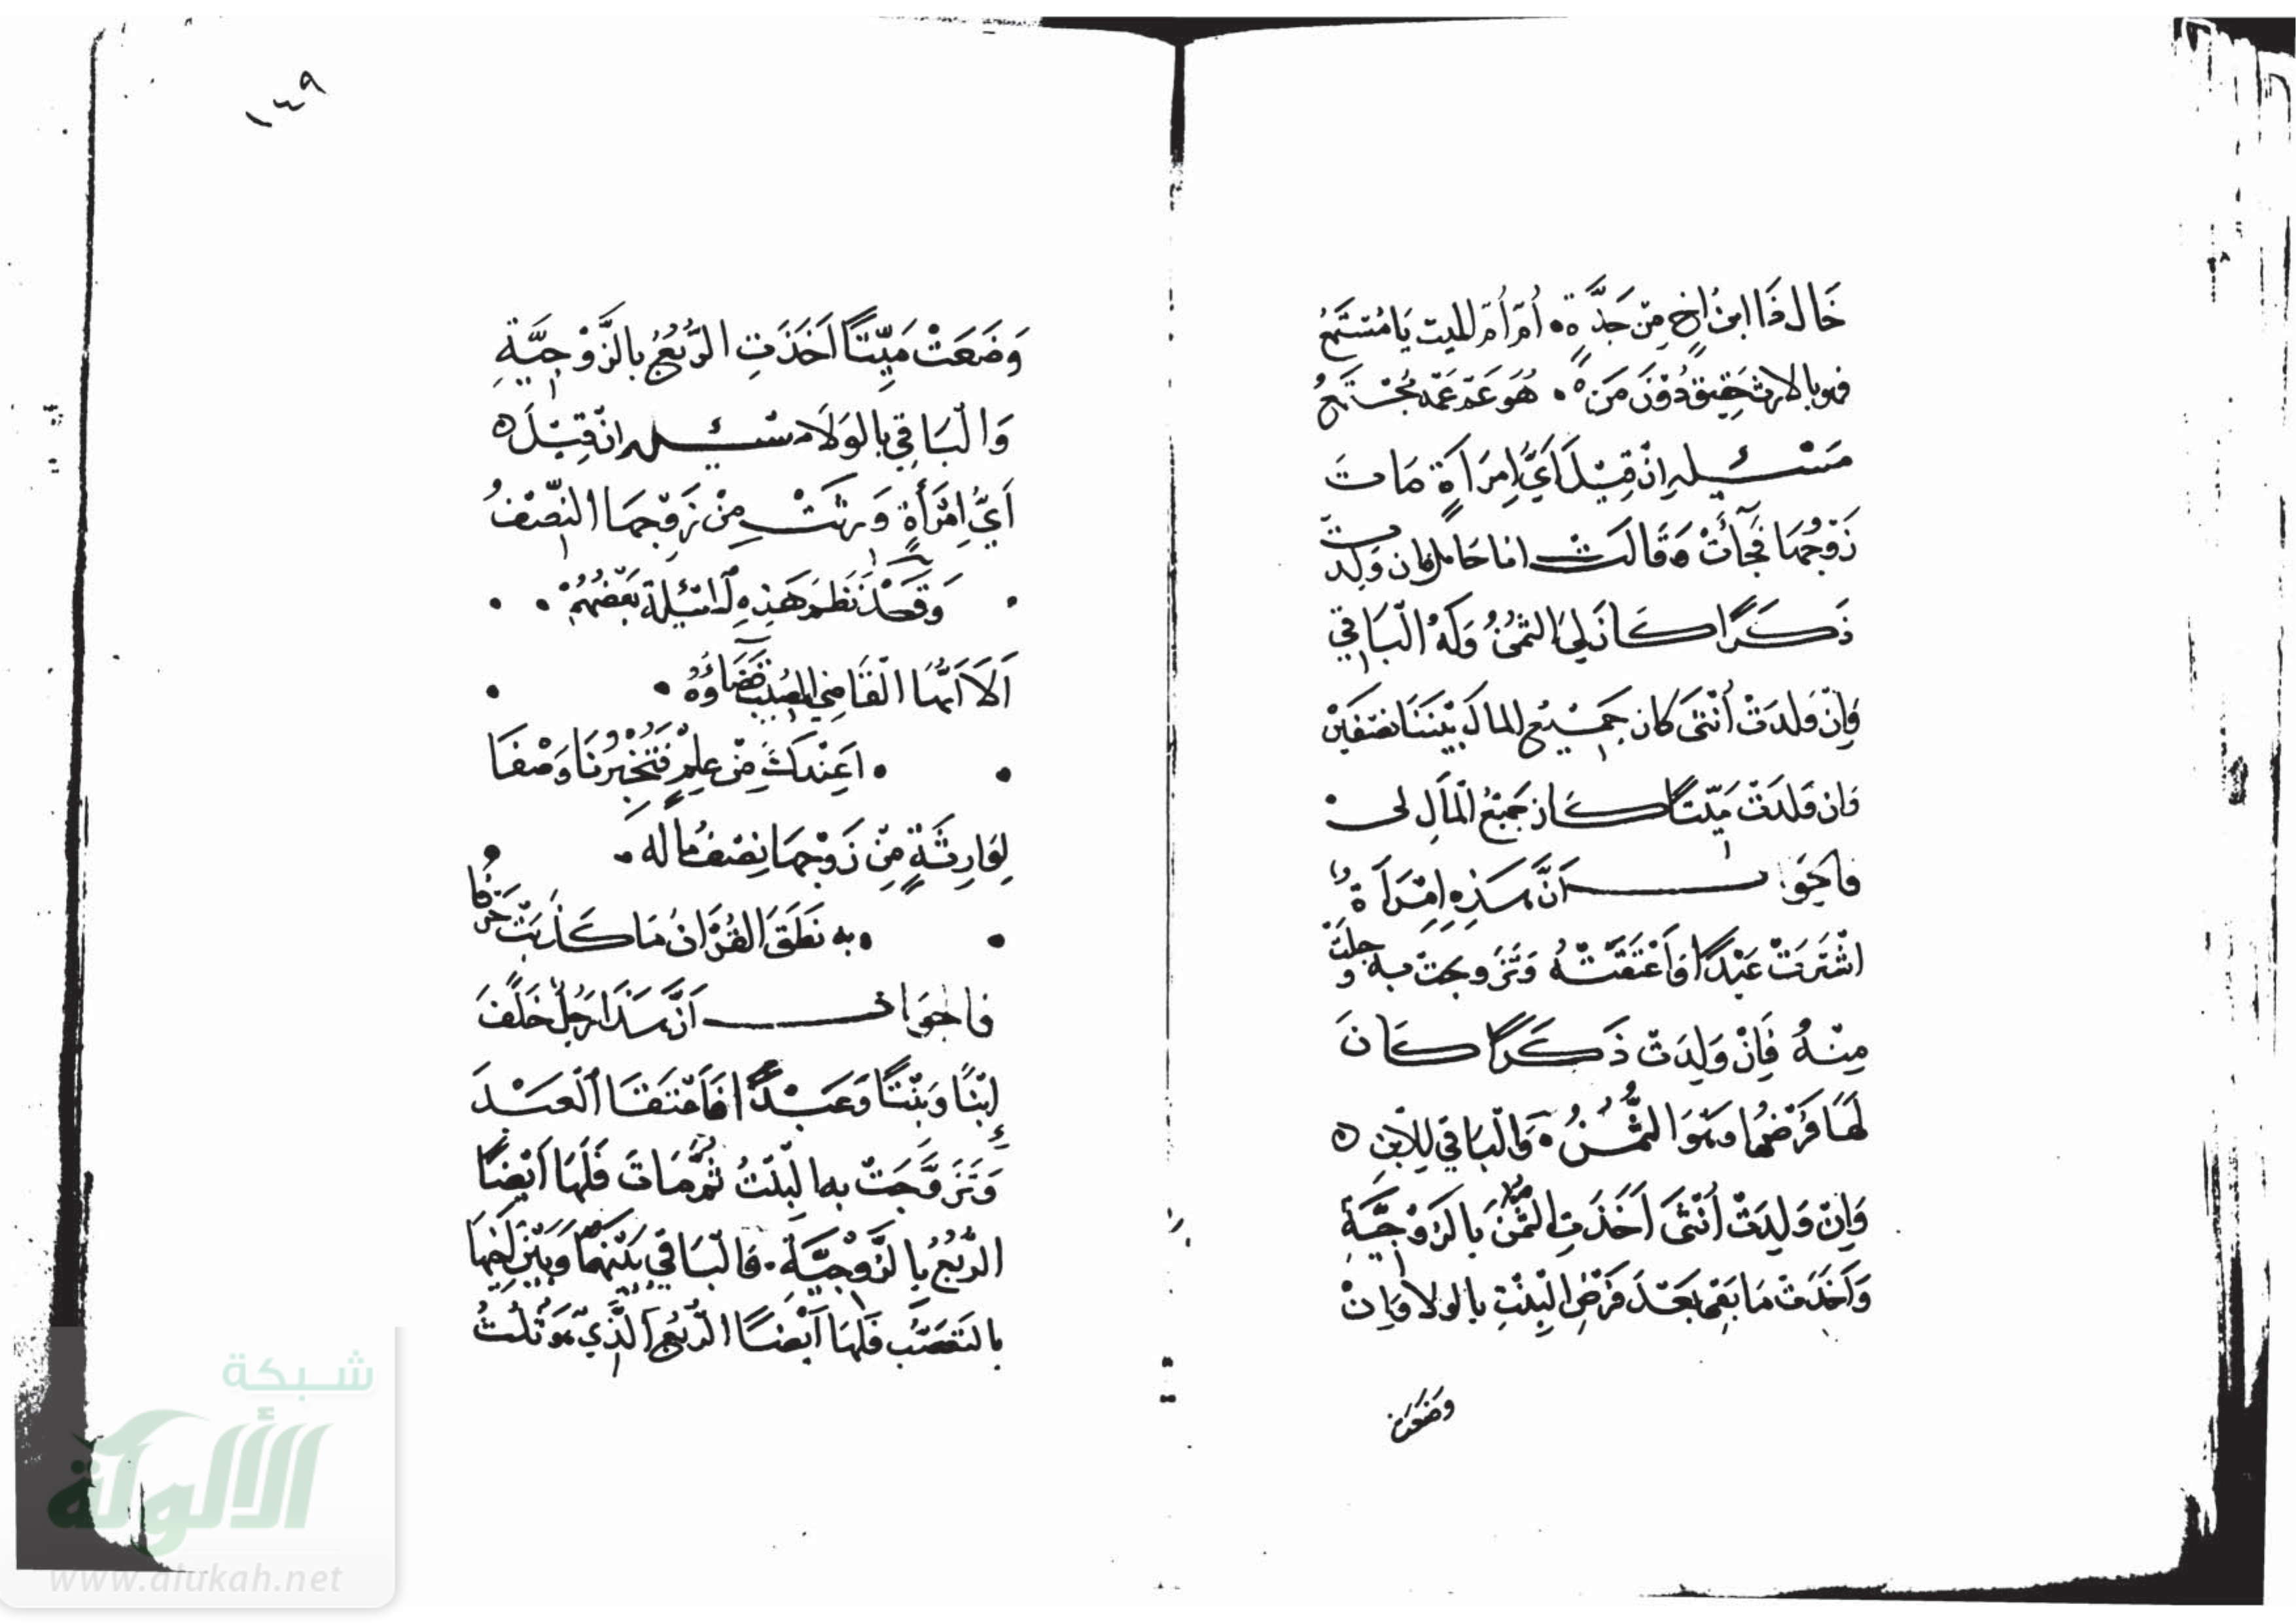 خَالُ ذَا ابنُ اخٍ مِنْ جَدَّةٍ • أُمّ أُمّ للميت يَا مُسْتَمِعُ
فهو بالارث حَقِيقٌ دُوْنَ مَنْ • هُوَ عَمّ عَمّه مُجْتَمِعُ
مَسْئله اِنْ قِيْلَ اَيُّ اِمرَاَةٍ مَاتَ
زَوْجُهَا فَجَأَتْ وَقَالَتْ انا حَامِل فان وَلدتُّ
ذَكَرًا كَانَ لِي الثمُنُ وَلَهُ الْبَاقِي
وَاِنْ وَلدَتُ اُنْثَى كان جَمِيْع المال بَيْنَنَا نصْفَيْنِ
وَان وَلدَتُ مَيّتًا كَانَ جَمِيْعُ الْمَالِ لى
فالجَوَاب اَنَّ هَذِهِ اِمْرَاَةٌ
اشْتَرَتْ عَبْدًا وَاَعْتَقَتْهُ وَتَزَوجَتْ به وحملت
مِنْهُ فَاِنْ وَلِدَتْ ذَكَرًا كَانَ
لَهَا فَرْضُهَا وَهُوَ الثُّمُنُ • وَالْبَاقِي لِلاِبْنِ ه
وَاِنْ وَلِدَتْ اُنْثَى اَخَذَتِ الثُّمُنَ بِالزَوْجِيَّةِ
وَاَخَذَتْ مَا بَقِيَ بَعْدَ فَرْضِ الْبِنْتِ بالولا وَاِنْ
وضعت
١٤٩
وَضَعَتْ مَيِّتًا اَخَذَتِ الرُّبُعُ بِالزَّوْجِيَّةِ
وَالْبَاقِي بالوَلَا مَسْئله اِنْ قِيْلَ ه
اَيُّ اِمْرَأَةٍ وَرِثَتْ مِنْ زَوْجِهَا النِّصْفُ
• وَقَدْ نَظَمَ هَذِهِ الْمَسْئِلَة بَعْضُهُمْ • •
اَلَا اَيُّهَا الْقَاضِي المُصِيْبُ قَضَاؤُهُ • •
• • اَعِنْدَكَ مِنْ عِلْمٍ فَتُخْبِرُنَا وَصْفَا
لِوَارِثَةٍ مِنْ زَوْجِهَا نِصْفُ مَا لَهُ • •
• • به نَطَقَ القُرْاٰنُ مَا كَذَبَتْ حَرْفًا
فالجَوَاب اَنَّ هَذَا رَجُلٌ خَلَّفَ
اِبْنًا وَبِنْتًا وَعَبْدًا فَاَعْتَقَا الْعَبْدَ
وَتَزَوَّجَتْ به الْبِنْتُ ثُمَّ مَاتَ فَلَهَا اَيْضًا
الرُّبُعُ بِالزَّوْجِيَّةِ • وَالْبَاقِي بَيْنَهُمَا وَبَيْنَ اَخِيْهَا
بالتَعَصُّب فَلَهَا اَيْضًا الرُّبُعُ الَّذِي هُوَ ثُلُثُ
شبكة
الألوكة
www.alukah.net